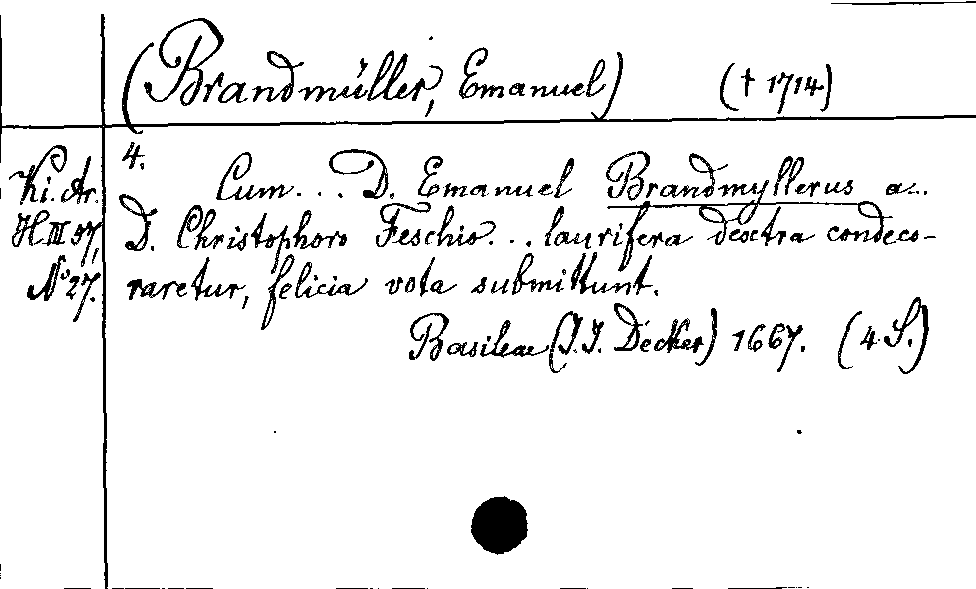 (Brandmüller, Emanuel) († 1714)
Ki. Ar. H III 37, No 27.
4.
Cum... D. Emanuel Brandmyllerus a...
D. Christophoro Feschio... laurifera dextra condeco-
raretur, felicia vota submittunt.
Basileae (J. J. Decker) 1667. (4 S.)